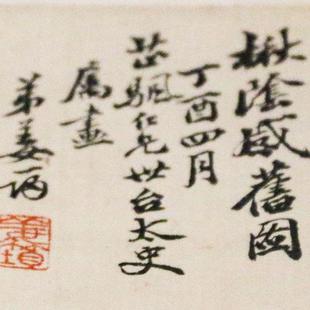 楸陰感舊圖
丁酉四月
芷颿仁兄世台太史
屬畫
弟姜筠